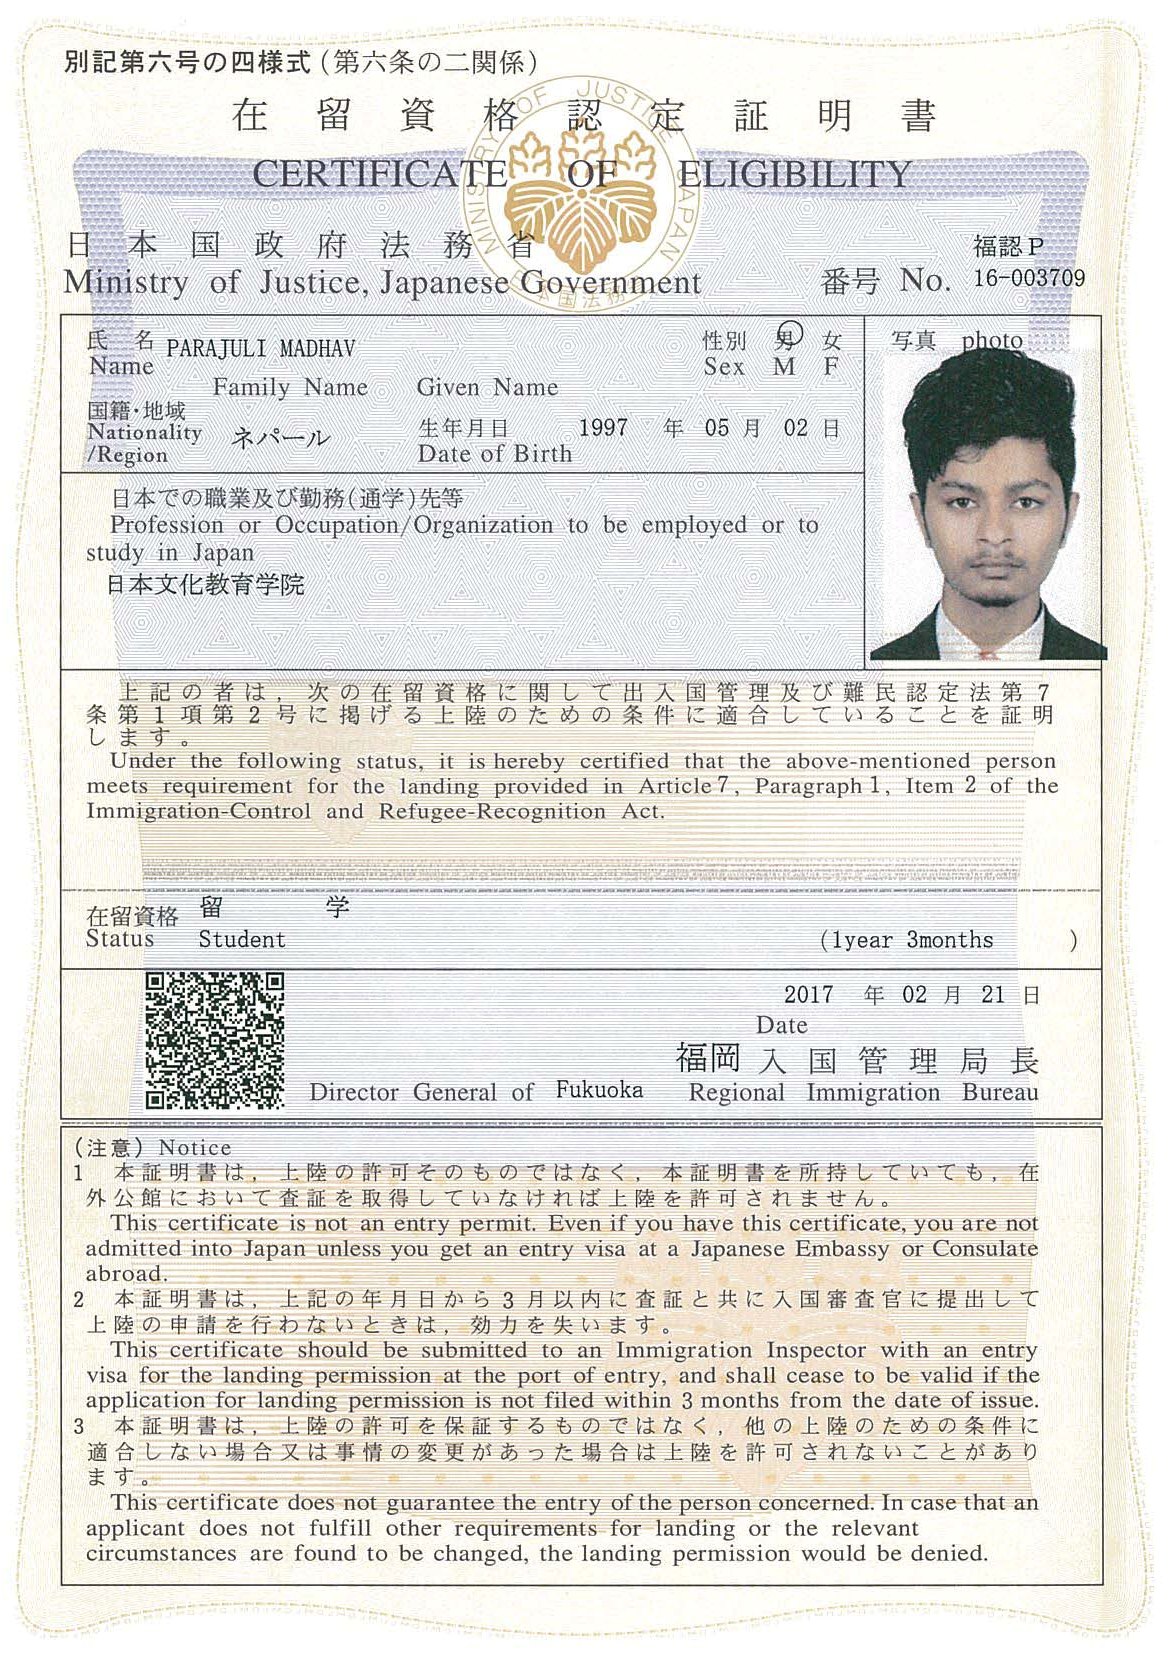 別記第六号の四様式（第六条の二関係）
在留資格認定証明書
CERTIFICATE OF ELIGIBILITY
MINISTRY OF JUSTICE JAPAN
日本国政府法務省
福認P
Ministry of Justice, Japanese Government 番号 No. 16-003709
氏名 PARAJULI MADHAV 性別 男 女 写真 photo
Name Sex M F
Family Name Given Name
国籍・地域
Nationality ネパール 生年月日 1997 年 05 月 02 日
/Region Date of Birth
日本での職業及び勤務(通学)先等
Profession or Occupation/Organization to be employed or to
study in Japan
日本文化教育学院
上記の者は，次の在留資格に関して出入国管理及び難民認定法第7
条第1項第2号に掲げる上陸のための条件に適合していることを証明
します。
Under the following status, it is hereby certified that the above-mentioned person
meets requirement for the landing provided in Article 7, Paragraph 1, Item 2 of the
Immigration-Control and Refugee-Recognition Act.
在留資格 留学
Status Student (1year 3months )
2017 年 02 月 21 日
Date
福岡入国管理局長
Director General of Fukuoka Regional Immigration Bureau
（注意）Notice
1 本証明書は，上陸の許可そのものではなく，本証明書を所持していても，在
外公館において査証を取得していなければ上陸を許可されません。
This certificate is not an entry permit. Even if you have this certificate, you are not
admitted into Japan unless you get an entry visa at a Japanese Embassy or Consulate
abroad.
2 本証明書は，上記の年月日から3月以内に査証と共に入国審査官に提出して
上陸の申請を行わないときは，効力を失います。
This certificate should be submitted to an Immigration Inspector with an entry
visa for the landing permission at the port of entry, and shall cease to be valid if the
application for landing permission is not filed within 3 months from the date of issue.
3 本証明書は，上陸の許可を保証するものではなく，他の上陸のための条件に
適合しない場合又は事情の変更があった場合は上陸を許可されないことがあり
ます。
This certificate does not guarantee the entry of the person concerned. In case that an
applicant does not fulfill other requirements for landing or the relevant
circumstances are found to be changed, the landing permission would be denied.